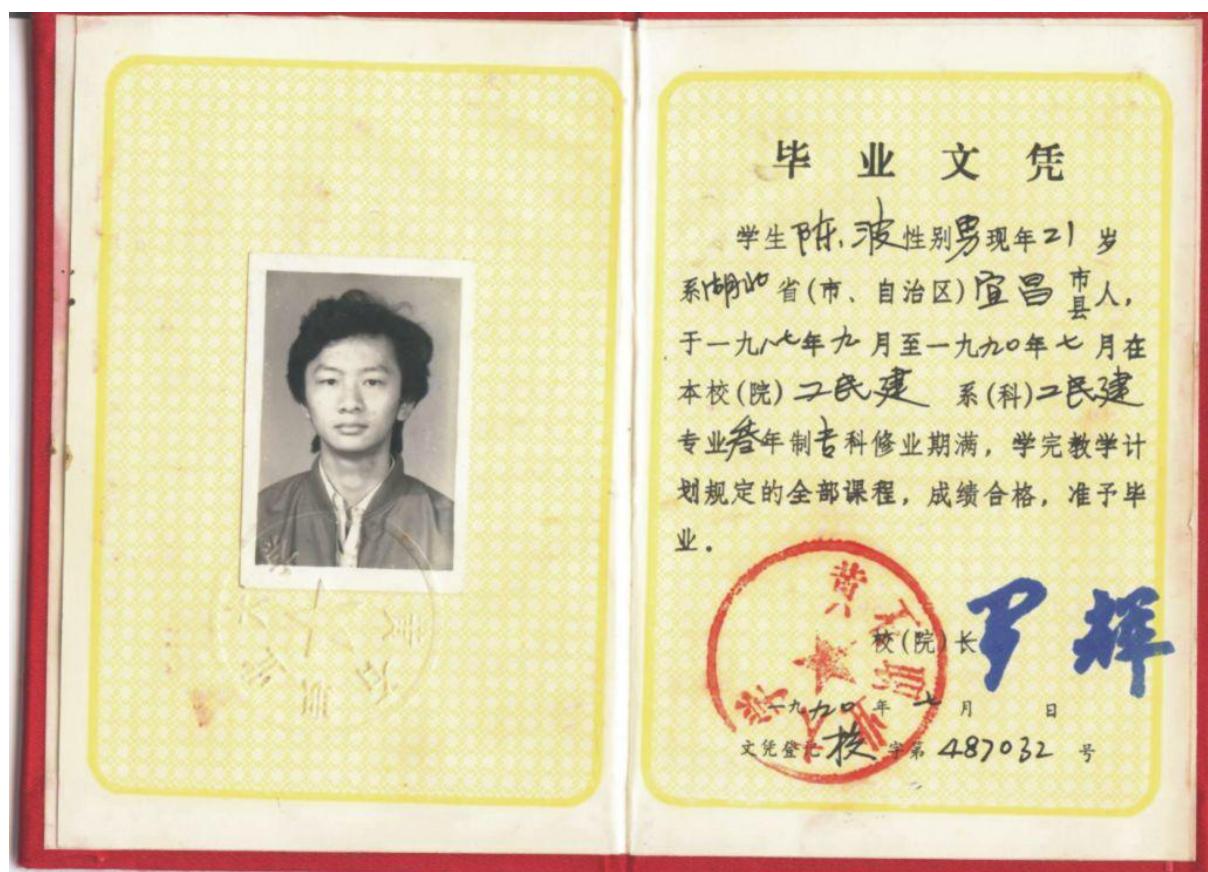 毕业文凭
学生陈波性别男现年21岁
系湖北省(市、自治区)宜昌市县人,
于一九八七年九月至一九九〇年七月在
本校(院)工民建系(科)工民建
专业叁年制专科修业期满,学完教学计
划规定的全部课程,成绩合格,准予毕
业.
黄石职业大学
校(院)长 罗辉
一九九〇年七月 日
文凭登记 字第487032号